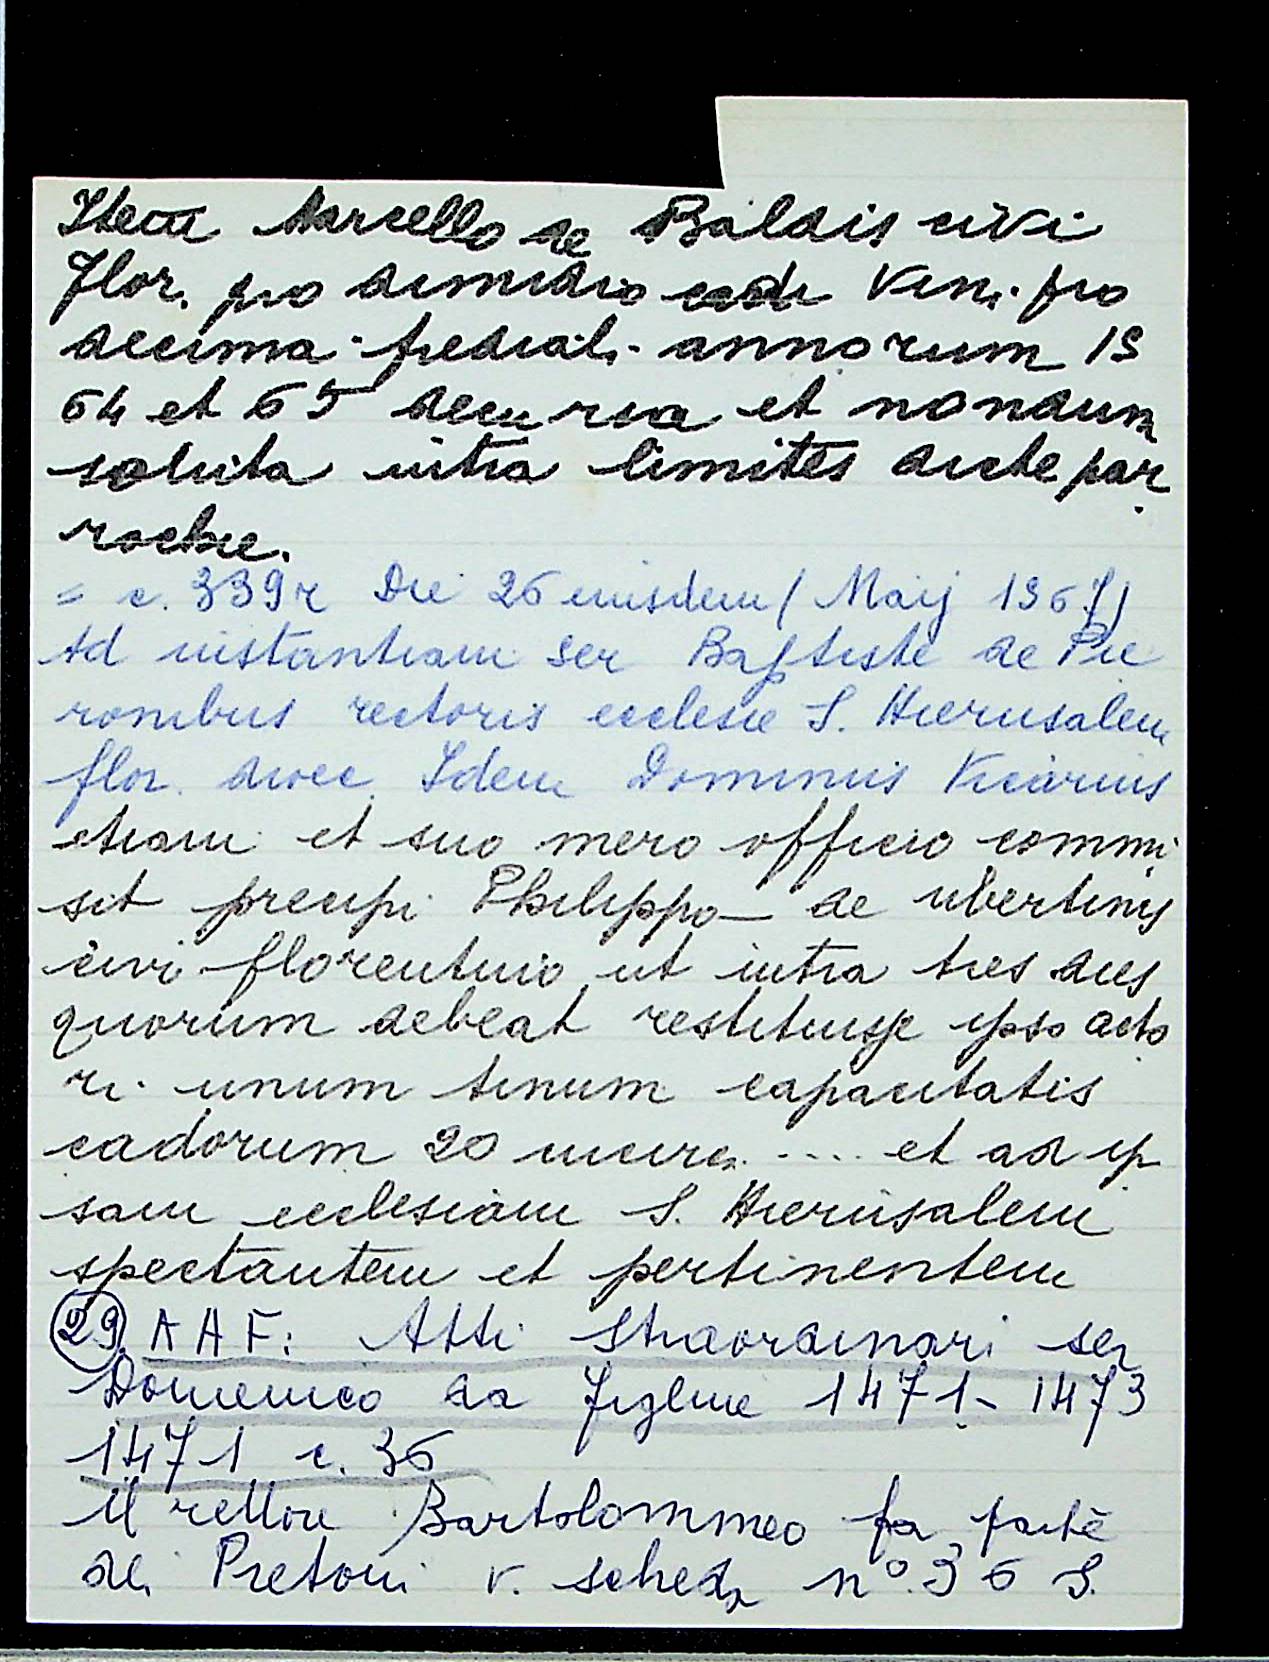 Item Marcello de Baldis civi
Flor. pro dimidio cadi vini pro
decima prediali annorum 15
64 et 65 decursa et nondum
soluta intra limites dicte par
rochie.
= c. 339r Die 26 eiusdem (Maij 1567)
Ad instantiam ser Baptiste de Pie
ronibus rectoris ecclesie S. Hierusalem
flor. dioec. Idem Dominus Vicarius
etiam et suo mero officio commi
sit precipi Philippo de ubertinis
civi florentino ut intra tres dies
quorum debeat restituisse ipso acto
ri unum tinum capacitatis
cadorum 20 .... et ad ip
sam ecclesiam S. Hierusalem
spectantem et pertinentem
29 AAF: Atti Straordinari ser
Domenico da Figline 1471-1473
1471 c. 36
Il rettore Bartolommeo fa parte
dei Pretoni v. scheda n°. 36 S.